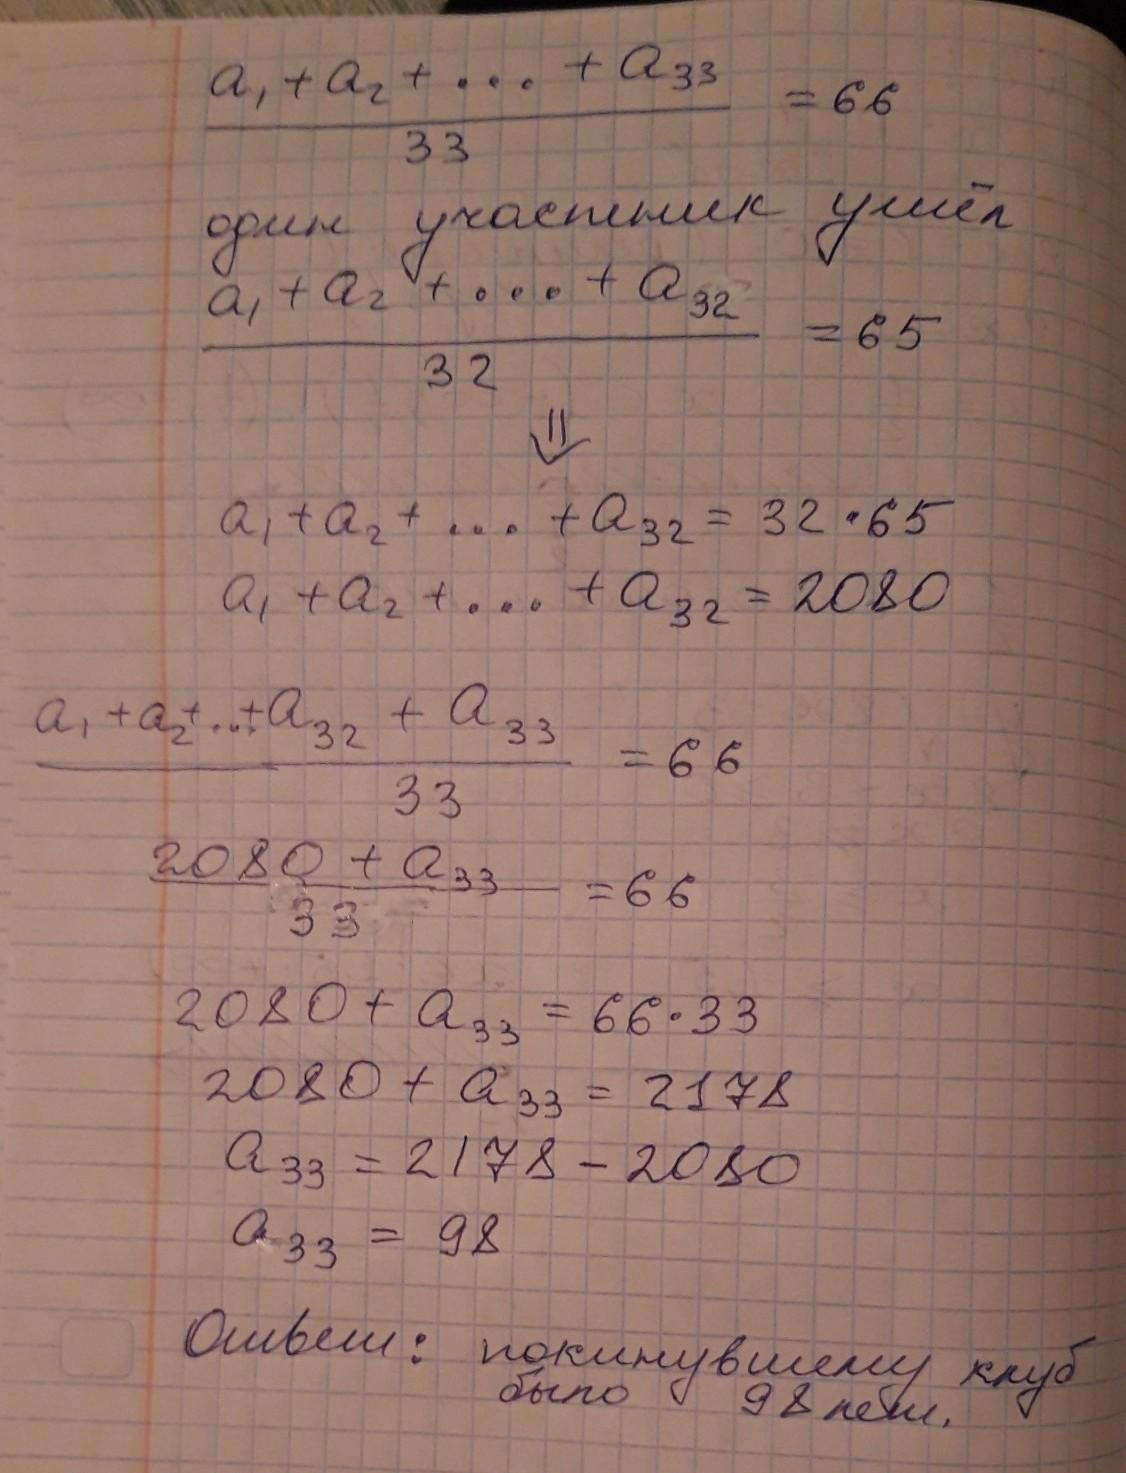 a₁ + a₂ + ... + a₃₃ / 33 = 66
один участник ушёл
a₁ + a₂ + ... + a₃₂ / 32 = 65
⇓
a₁ + a₂ + ... + a₃₂ = 32 · 65
a₁ + a₂ + ... + a₃₂ = 2080
a₁ + a₂ + ... + a₃₂ + a₃₃ / 33 = 66
2080 + a₃₃ / 33 = 66
2080 + a₃₃ = 66 · 33
2080 + a₃₃ = 2178
a₃₃ = 2178 - 2080
a₃₃ = 98
Ответ: покинувшему клуб
было 98 лет.